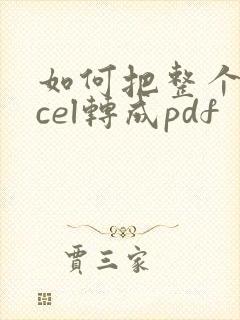 如何把整个
cel轉成pdf
賈三家